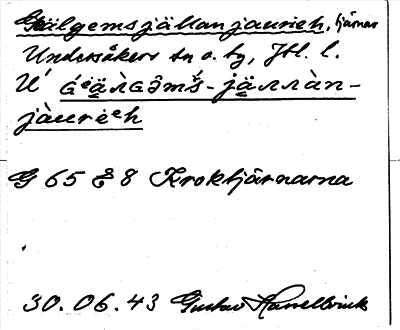 Gälgemsjällanjaurieh, tjärnar
Undersåkers sn o. tg, Jtl. l.
U'
jàurieh
G 65 E 8 Kroktjärnarna
30.06.43 Gustav Hasselbrink